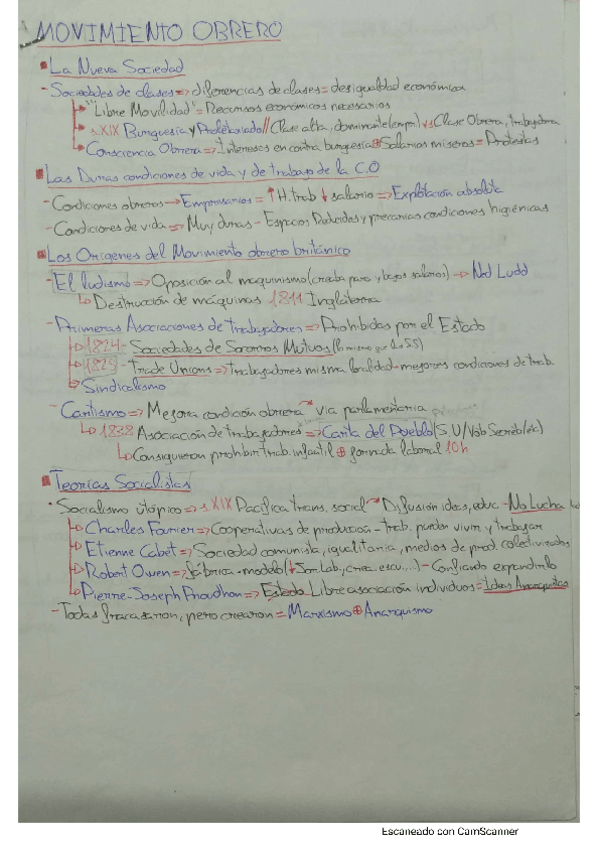 MOVIMIENTO OBRERO
La Nueva Sociedad
- Sociedades de clases => diferencias de clases = desigualdad económica
"Libre Movilidad" = Recursos económicos necesarios
s.XIX Burguesía y Proletariado // Clase alta, dominante (empr.) vs Clase Obrera, trabajadora
Consciencia Obrera => Intereses en contra burguesía ⊕ Salarios míseros = Protestas
Las Duras condiciones de vida y de trabajo de la C.O
- Condiciones obreros → Empresarios = ↑ H.trab ↓ salario => Explotación absoluta
- Condiciones de vida => Muy duras - Espacios Reducidos y precarias condiciones higiénicas
Los Orígenes del Movimiento obrero británico
- El ludismo => Oposición al maquinismo (creaba paro y bajos salarios) → Ned Ludd
Destrucción de máquinas 1811 Inglaterra
- Primeras Asociaciones de trabajadores => Prohibidas por el Estado
1824 - Sociedades de Socorros Mutuos (lo mismo que la SS)
1829 - Trade Unions => trabajadores misma localidad - mejores condiciones de trab.
Sindicalismo
- Cartismo => Mejora condición obrera vía parlamentaria
1838 Asociación de trabajadores => Carta del Pueblo (S.U/Vob Secreto/etc)
Consiguieron prohibir trab. infantil ⊕ jornada laboral 10h
Teorías Socialistas
· Socialismo utópico => s.XIX Pacífica trans. social Difusión ideas, educ - No Lucha
Charles Fourier => Cooperativas de producción - trab. puedan vivir y trabajar
Etienne Cabet => Sociedad comunista, igualitaria, medios de prod. colectivizados
Robert Owen => fábrica-modelo (↓ Jor.Lab, crea. escu....) - Confiando expandirlo
Pierre-Joseph Proudhon => Estado Libre asociación individuos = Ideas Anarquistas
- Todas fracasaron, pero crearon = Marxismo ⊕ Anarquismo
Escaneado con CamScanner